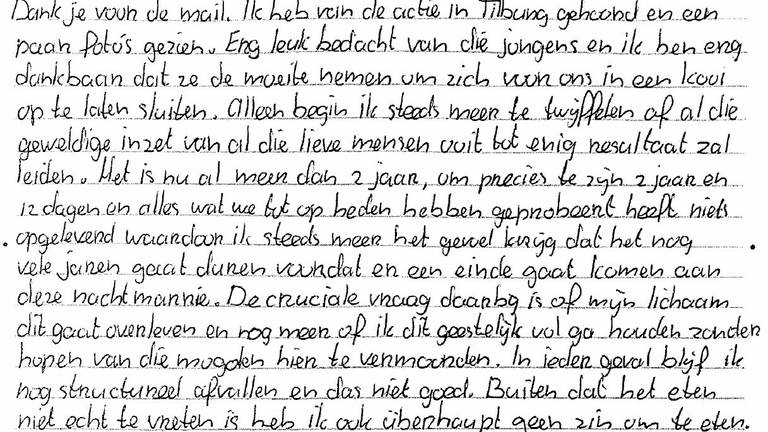 Dank je voor de mail. Ik heb van de actie in Tilburg gehoord en een
paar foto's gezien. Erg leuk bedacht van die jongens en ik ben erg
dankbaar dat ze de moeite nemen om zich voor ons in een kooi
op te laten sluiten. Alleen begin ik steeds meer te twijffelen of al die
geweldige inzet van al die lieve mensen ooit tot enig resultaat zal
leiden. Het is nu al meer dan 2 jaar, om precies te zijn 2 jaar en
12 dagen en alles wat we tot op heden hebben geprobeert heeft niets
opgeleverd waardoor ik steeds meer het gevoel krijg dat het nog
vele jaren gaat duren voordat er een einde gaat komen aan
deze nachtmerrie. De cruciale vraag daarbij is of mijn lichaam
dit gaat overleven en nog meer of ik dit geestelijk vol ga houden zonder
hopen van die mogolen hier te vermoorden. In ieder geval blijf ik
nog structureel afvallen en das niet goed. Buiten dat het eten
niet echt te vreten is heb ik ook überhaupt geen zin om te eten.